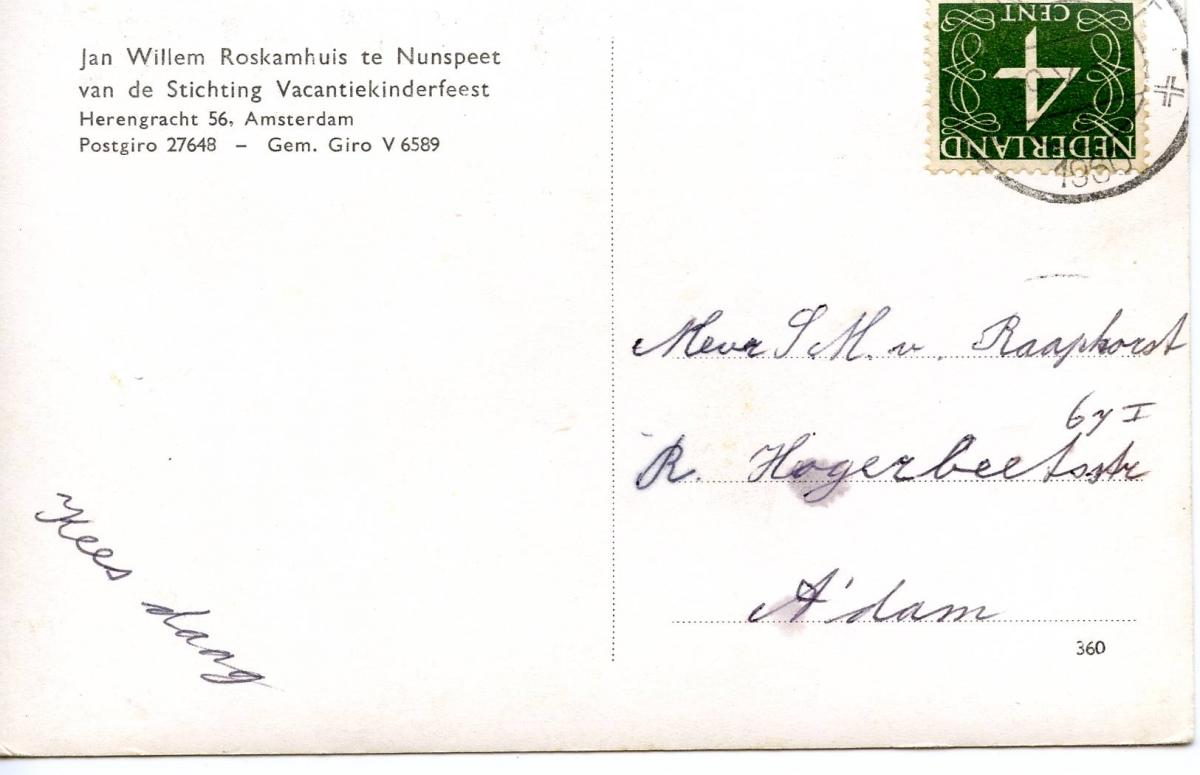 Jan Willem Roskamhuis te Nunspeet
van de Stichting Vacantiekinderfeest
Herengracht 56, Amsterdam
Postgiro 27648 – Gem. Giro V 6589
NEDERLAND
4
CENT
1950
Mevr S M. v. Raaphorst
67 I
R. Hogerbeetsstr
A'dam
360
Kees daag